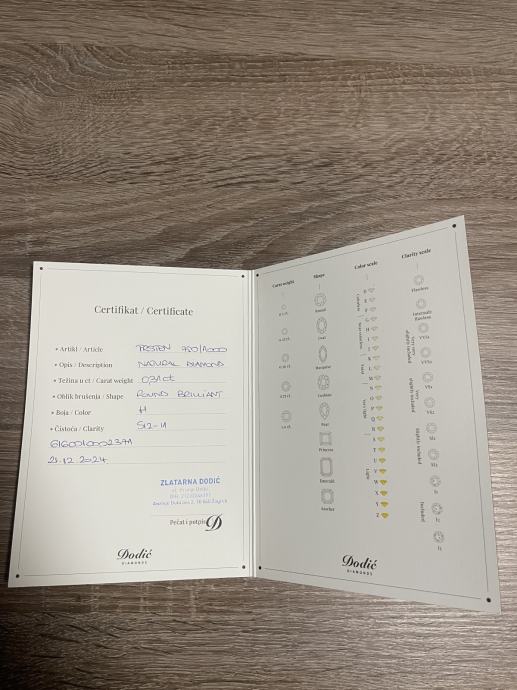 Certifikat / Certificate
• Artikl / Article PRSTEN 750/1000
• Opis / Description NATURAL DIAMOND
• Težina u ct / Carat weight 0,31ct
• Oblik brušenja / Shape ROUND BRILLIANT
• Boja / Color H
• Čistoća / Clarity SI2-I1
21.12.2024
ZLATARNA DODIĆ
Pečat i potpis
Dodić
DIAMONDS
Carat weight
Shape
Round
Oval
Marquise
Cushion
Pear
Princess
Emerald
Asscher
Color scale
D
E
F
G
H
I
J
K
L
M
N
O
P
Q
R
S
T
U
V
W
X
Y
Z
Colorless
Near colorless
Faint
Very light
Light
Clarity scale
Flawless
Internally
flawless
VVS1
VVS2
VS1
VS2
SI1
SI2
I1
I2
I3
Very very
slightly included
Very
slightly included
Slightly included
Included
Dodić
DIAMONDS